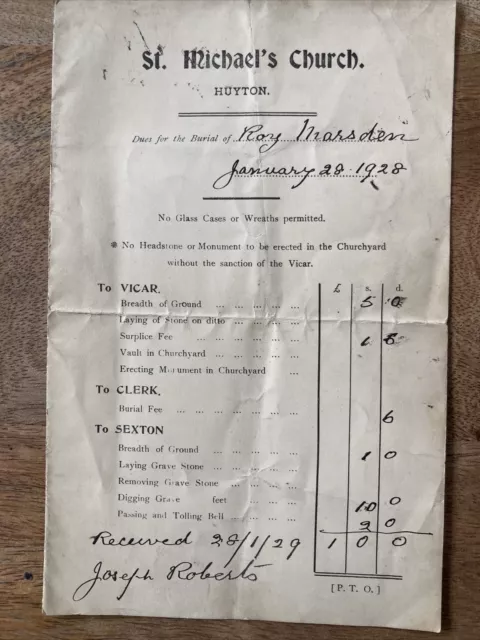 St. Michael's Church.
HUYTON.
Dues for the Burial of Roy Marsden
January 28 1928
No Glass Cases or Wreaths permitted.
No Headstone or Monument to be erected in the Churchyard
without the sanction of the Vicar.
To VICAR. £ s. d.
Breadth of Ground ... ... ... ... 5 0
Laying of Stone on ditto ... ... ...
Surplice Fee ... ... ... ... ... 1 6
Vault in Churchyard ... ... ... ...
Erecting Monument in Churchyard ...
To CLERK.
Burial Fee ... ... ... ... ... 6
To SEXTON
Breadth of Ground ... ... ... ... 1 0
Laying Grave Stone ... ... ... ...
Removing Grave Stone ... ... ...
Digging Grave feet ... ... ... 10 0
Passing and Tolling Bell ... ... ... 2 0
Received 28/1/29 1 0 0
Joseph Roberts
[P. T. O.]